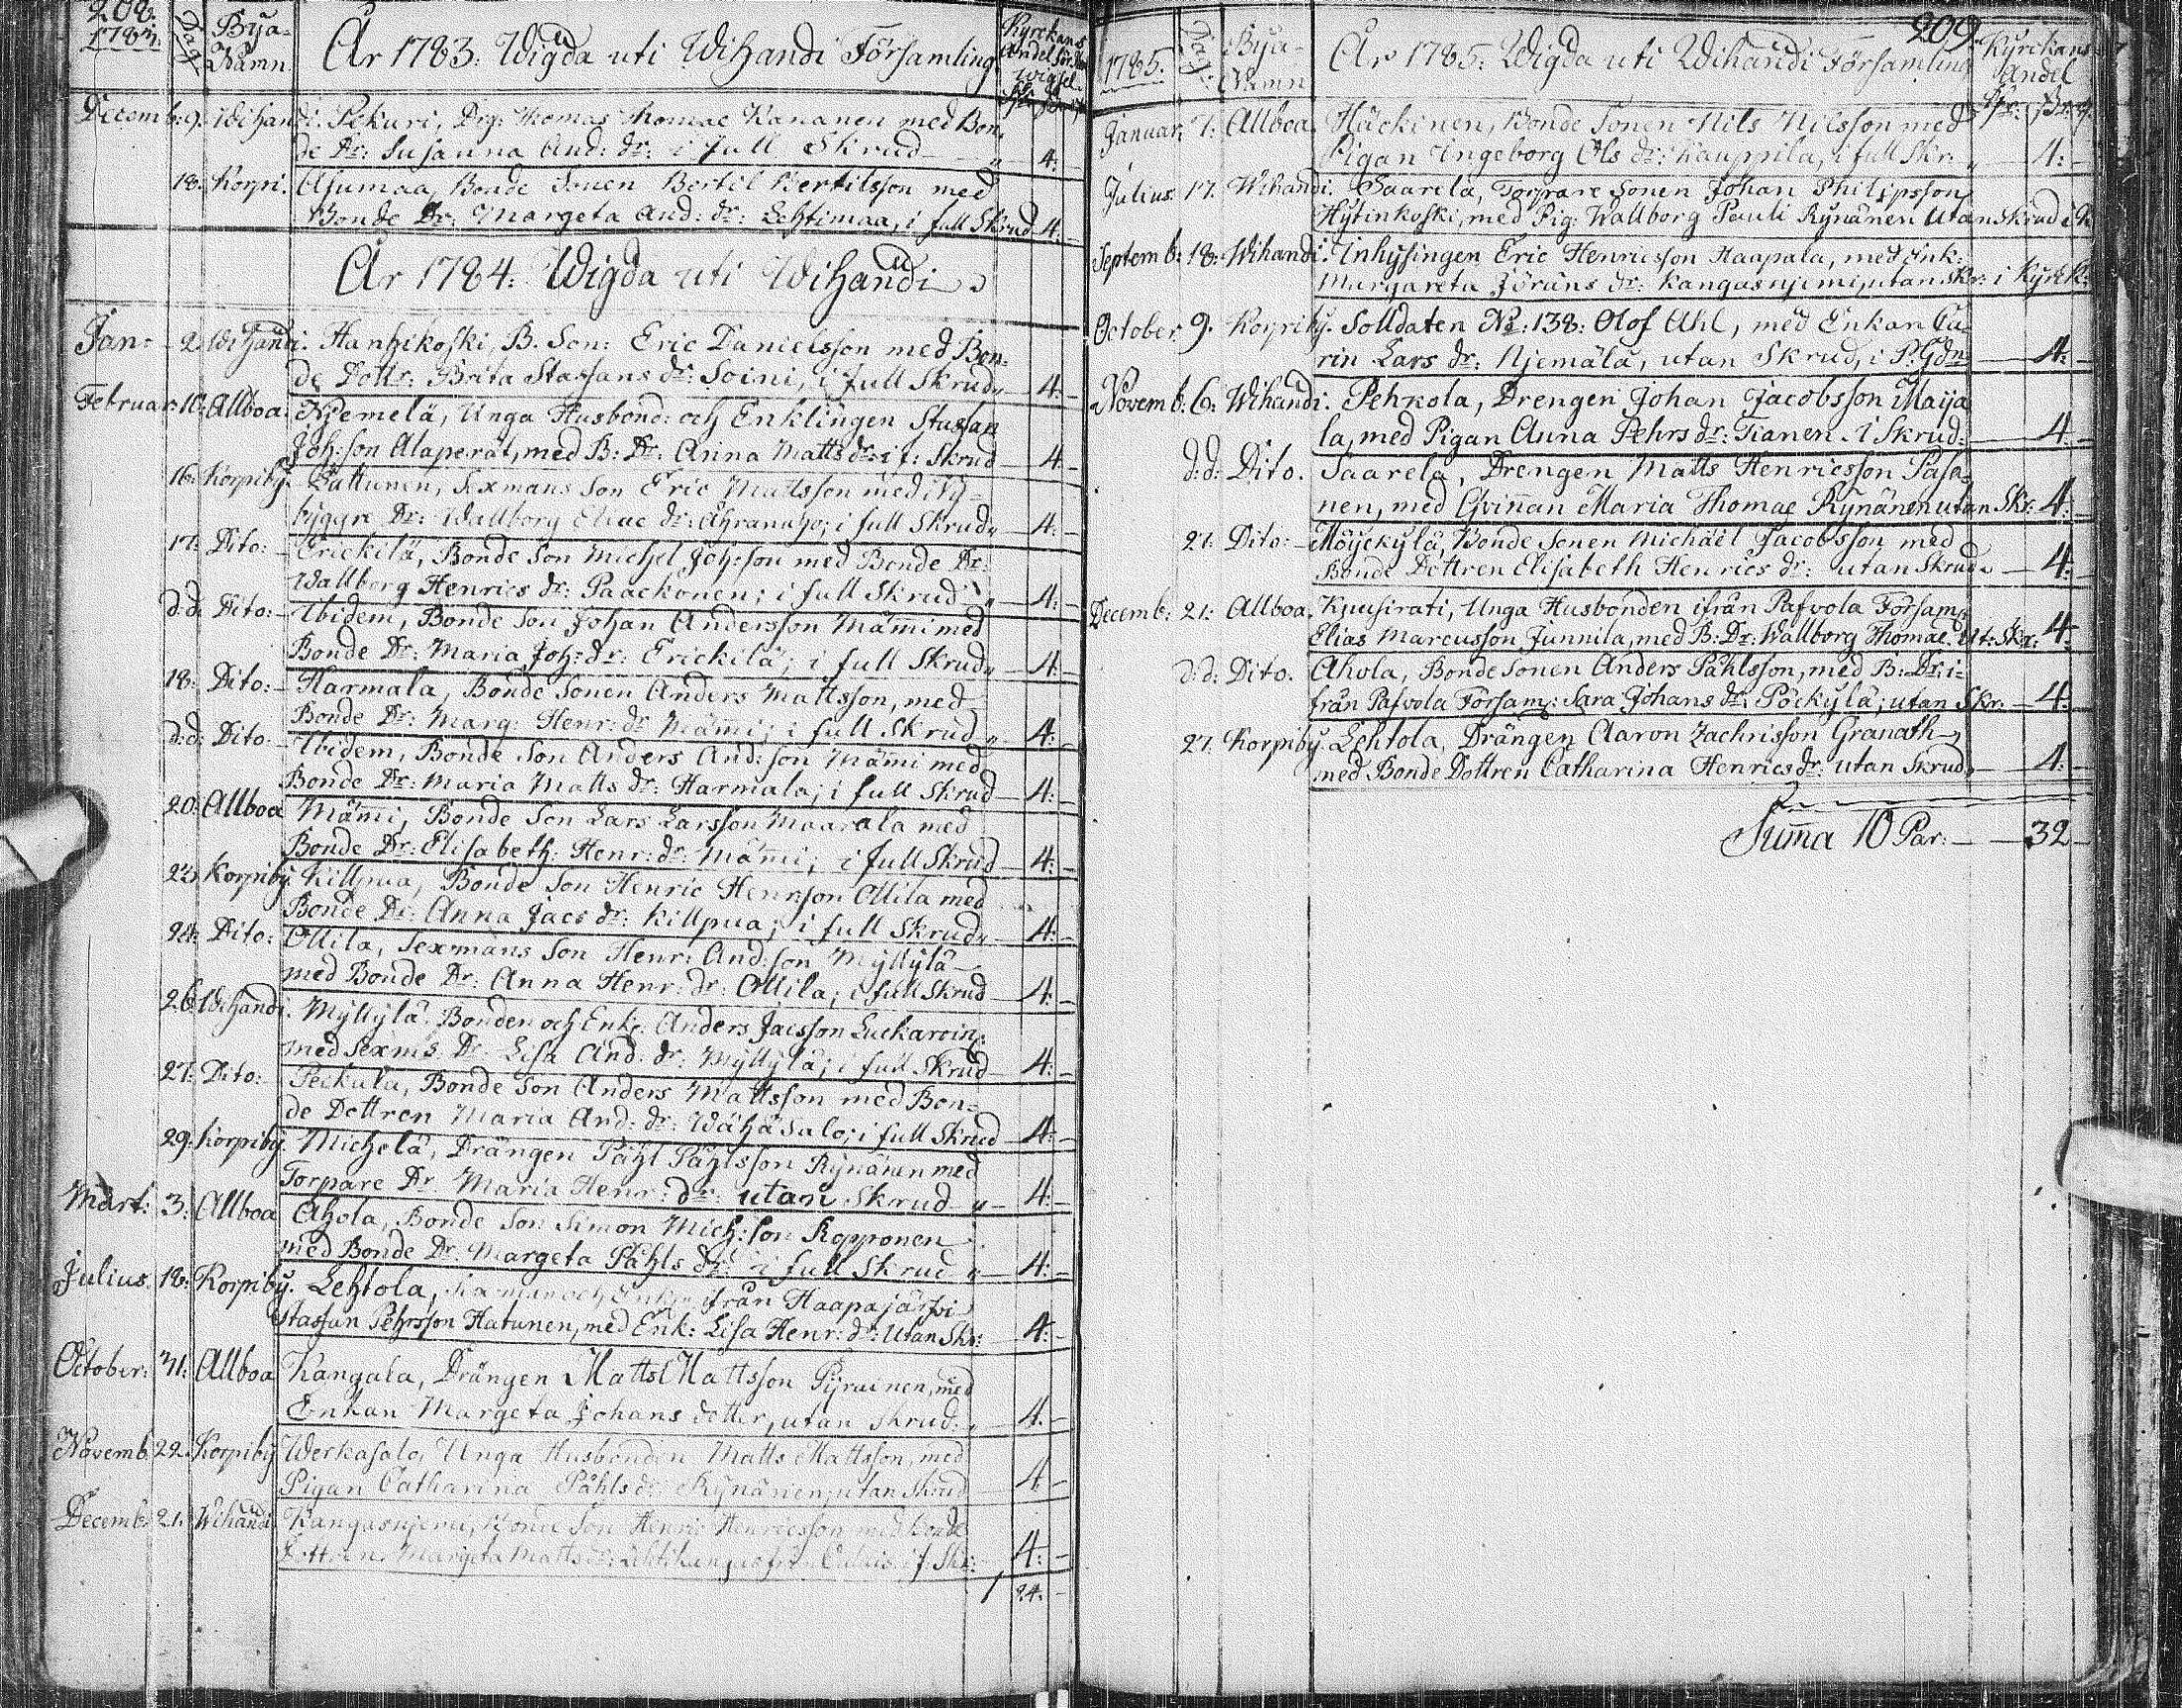 208.
1783. Dag. Bya-Namn. År 1783. Wigda uti Wihandi Församling. Kyrckans Andel för Wigsel
Decemb: 9. Wihandi. Pekuri, Drg: Thomas Thomae Kananen med Bon-
de Dr: Susanna And: dr: i full Skrud 4:
18. Korpi. Asumaa, Bonde Sonen Bertil Bertilsson med
Bonde Dr: Margeta And: dr: Lehtimaa, i full Skrud 4.
År 1784. Wigda uti Wihandi
Jan: 2. Wihandi. Hanhikoski, B. Son: Eric Danielsson med Bon-
de Dottr: Brita Staffans dr: Soini, i full Skrud 4.
Februar: 10. Allboa. Njemelä, Unga Husbond: och Enklingen Staffan
Joh:son Alaperät, med B: Dr: Anna Matts dr: i f: Skrud 4.
16. Korpiby. Pattunen, Sexmans Son Eric Mattsson med Ny-
byggre Dr: Wallborg Eliae dr: i full Skrud 4:
17. Dito: Erickilä, Bonde Son Michel Joh:son med Bonde Dr:
Wallborg Henrics dr: Paackonen; i full Skrud 4:
d:d: Dito: Ibidem, Bonde Son Johan Andersson Mämi med
Bonde Dr: Maria Joh: dr: Erickilä; i full Skrud 4:
18. Dito: Harmala, Bonde Sonen Anders Mattsson, med
Bonde Dr: Marg: Henr: dr: Mämi; i full Skrud 4:
d:d: Dito. Ibidem, Bonde Son Anders And:son Mämi med
Bonde Dr: Maria Matts dr: Harmala; i full Skrud 4:
20. Allboa Mämi, Bonde Son Lars Larsson Maarala med
Bonde Dr: Elisabeth Henr: dr: Mämi; i full Skrud 4:
23. Korpiby. Killpua, Bonde Son Henric Henrsson Ollila med
Bonde Dr: Anna Jacs dr: Killpua; i full Skrud 4:
24. Dito: Ollila, Sexmans Son Henr: And:son Myllylä
med Bonde Dr: Anna Henr: dr: Ollila; i full Skrud 4.
26. Wihandi. Myllylä. Bonden och Enkl: Anders Jacsson
med Sexm:s Dr: Lisa And: dr: Myllylä; i full Skrud 4:
27. Dito: Peckala, Bonde Son Anders Mattsson med Bon-
de Dottren Maria And: dr: Wähäsalo; i full Skrud 4:
29. Korpiby. Michelä, Drängen Påhl Påhlsson Rynänen med
Torpare Dr: Maria Henr: dr: utan Skrud 4:
Mart: 3. Allboa Ahola, Bonde Son Simon Mich:son Ropponen
med Bonde Dr: Margeta Påhls dr: i full Skrud 4:
Julius. 18. Korpiby. Lehtola, Sexman och Enkl: ifrån Haapajärfwi
Staffan Pehrsson Hatunen, med Enk: Lisa Henr: dr: Utan Skr: 4:
October: 31. Allboa Kangala, Drängen Matts Mattsson Pyrainen, med
Enkan Margeta Johans dotter, utan skrud. 4.
Novemb. 22. Korpiby Werkasalo, Unga Husbonden Matts Mattsson, med
Pigan Catharina Påhls dr: Rynänen, utan Skrud 4.
Decemb: 21. Wihandi Kangasnjemi, Bonde Son Henric Henricsson med Bonde
Dottren Margeta Matts dr: Lehtikangas i f. Skr: 4:
84.
209.
1785. Dag: Bya-Namn År 1785. Wigda uti Wihandi Församling Kyrckans Andel
Januar: 7. Allboa. Häckinen, Bonde Sonen Nils Nilsson med
Pigan Ingeborg Ols dr: Kauppila, i full Skr: 4:
Julius. 17. Wihandi. Saarela, Torpare Sonen Johan Philipsson
Hytinkoski, med Pig: Wallborg Pauli Rynänen Utan Skrud
Septemb: 18. Wihandi. Inhysingen Eric Henricsson Haapala, med Enk:
Margareta Jörans dr: Kangasnjemi, utan Skr: i Kyrck:
October. 9. Korpiby. Solldaten No: 138: Olof Ahl, med Enkan Ca-
rin Lars dr: Njemälä, utan Skrud, i P:Gdn 4.
Novemb: 6: Wihandi. Pehkola, Drengen Johan Jacobsson Maija
la, med Pigan Anna Pehrs dr: Tianen. i Skrud: 4.
d:d: Dito. Saarela, Drengen Matts Henricsson Pasa-
nen, med Qvinnan Maria Thomae Rynänen utan Skr: 4.
21. Dito: Möyckylä, Bonde Sonen Michael Jacobsson med
Bonde Dottren Elisabeth Henrics dr: utan Skrud 4:
Decemb: 21: Allboa. Kuusirati, Unga Husbonden ifrån Pafvola Försam:
Elias Marcusson Junnila, med B: Dr: Wallborg Thomae. Ut: Skr: 4.
d:d: Dito. Ahola, Bonde Sonen Anders Påhlsson, med B: Dr: i-
från Pafvola Försam: Sara Johans dr: Pöckylä; utan Skr. 4.
27. Korpiby. Lehtola, Drängen Aaron Zachrisson Granath
med Bonde Dottren Catharina Henrics dr: utan Skrud 4.
Summa 10 Par: 32